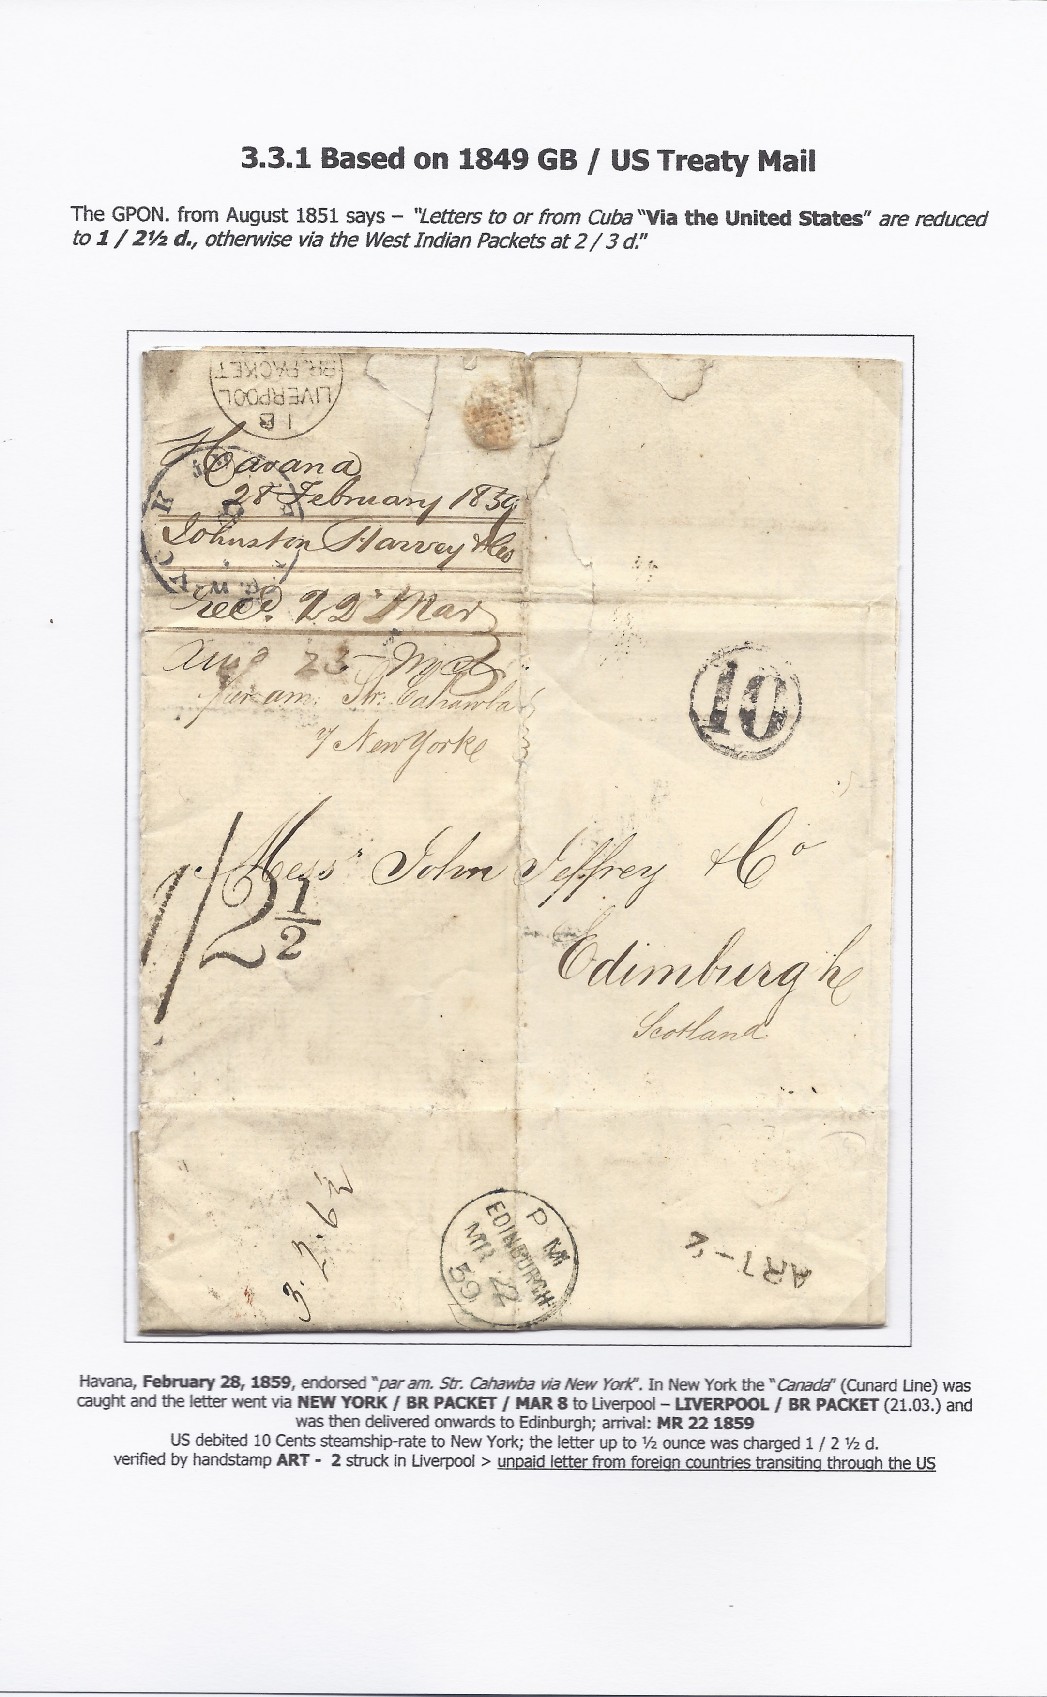 3.3.1 Based on 1849 GB / US Treaty Mail
The GPON. from August 1851 says – "Letters to or from Cuba "Via the United States" are reduced
to 1 / 2½ d., otherwise via the West Indian Packets at 2 / 3 d."
BR. PACKET
LIVERPOOL
Havana
28 February 1859
Johnston Harvey & Co
Recd. 22 Mar
23
par am: Str: Cahawba
New Yorke
10
1/2½
Messrs John Jeffrey & Co
Edimburgh
Scotland
3.2.6½
PM
EDINBURGH
MR 22
59
ART-2
Havana, February 28, 1859, endorsed "par am. Str. Cahawba via New York". In New York the "Canada" (Cunard Line) was
caught and the letter went via NEW YORK / BR PACKET / MAR 8 to Liverpool – LIVERPOOL / BR PACKET (21.03.) and
was then delivered onwards to Edinburgh; arrival: MR 22 1859
US debited 10 Cents steamship-rate to New York; the letter up to ½ ounce was charged 1 / 2 ½ d.
verified by handstamp ART - 2 struck in Liverpool > unpaid letter from foreign countries transiting through the US